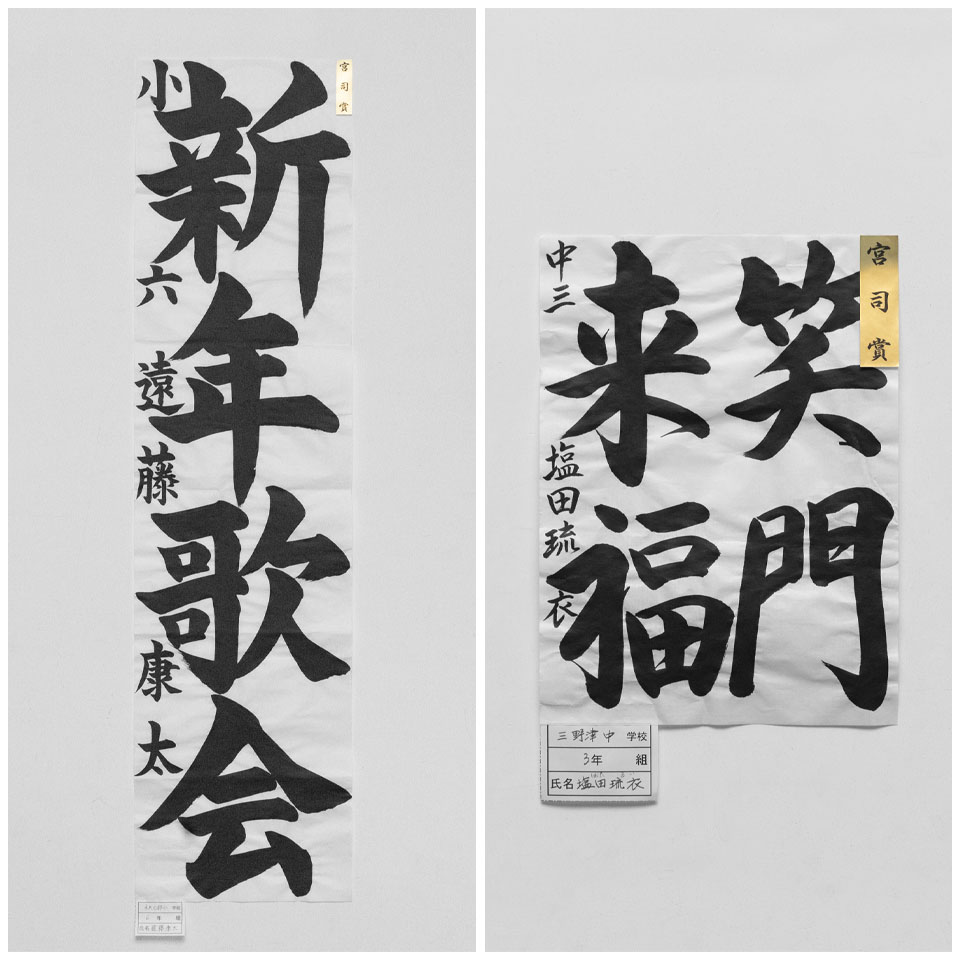 宮司賞
新年歌会
小六 遠藤康太
年 組
宮司賞
笑門
来福
中三 塩田琉衣
三野津中 学校
3年 組
氏名 塩田琉衣